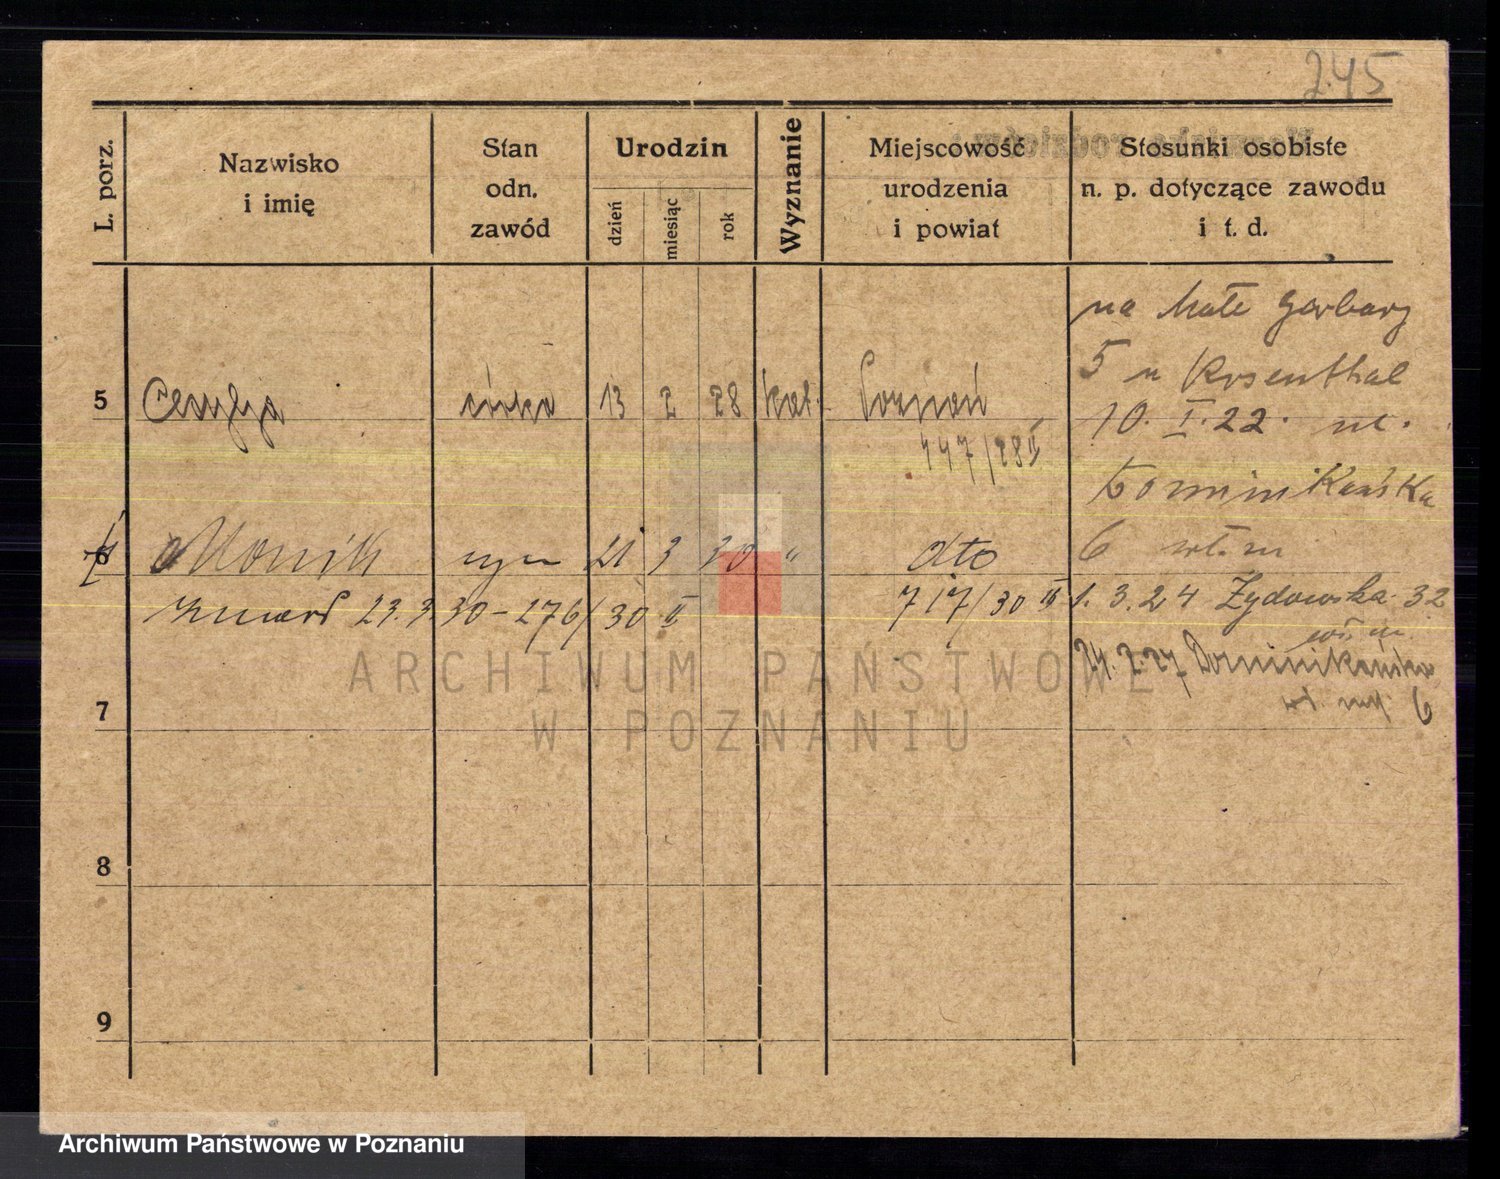 245
L. porz.
Nazwisko
i imię
Stan
odn.
zawód
Urodzin
dzień
miesiąc
rok
Wyznanie
Miejscowość
urodzenia
i powiat
Stosunki osobiste
n. p. dotyczące zawodu
i t. d.
na Małe Garbary
5 u Rosenthal
10. I. 22. ul.
Dominikańska
6 wł. m
1. 3. 24 Żydowska 32
wł. m.
24. 2. 27 Dominikańska
6
5
córka 13 2 28 kat. Poznań
447/28 II
6
syn 21 3 30 " dto
717/30 II
zmarł 23.3.30 - 276/30 II
7
8
9
ARCHIWUM PAŃSTWOWE
W POZNANIU
Archiwum Państwowe w Poznaniu